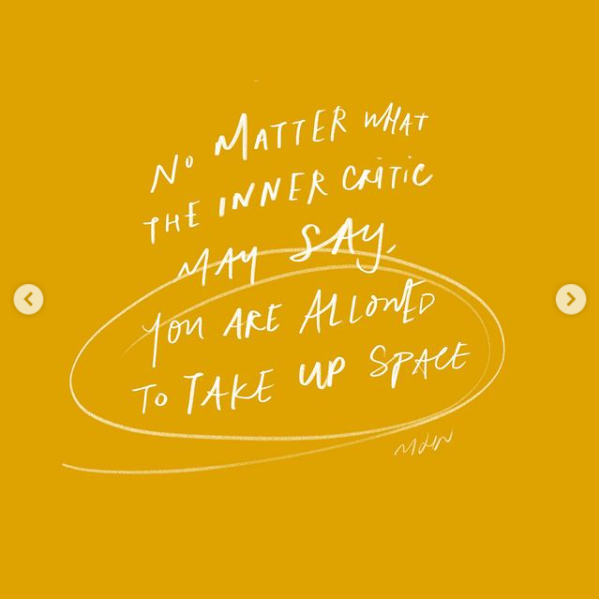 No MATTER WHAT
THE INNER CRITIC
MAY SAY,
YOU ARE ALLOWED
TO TAKE UP SPACE
MHN